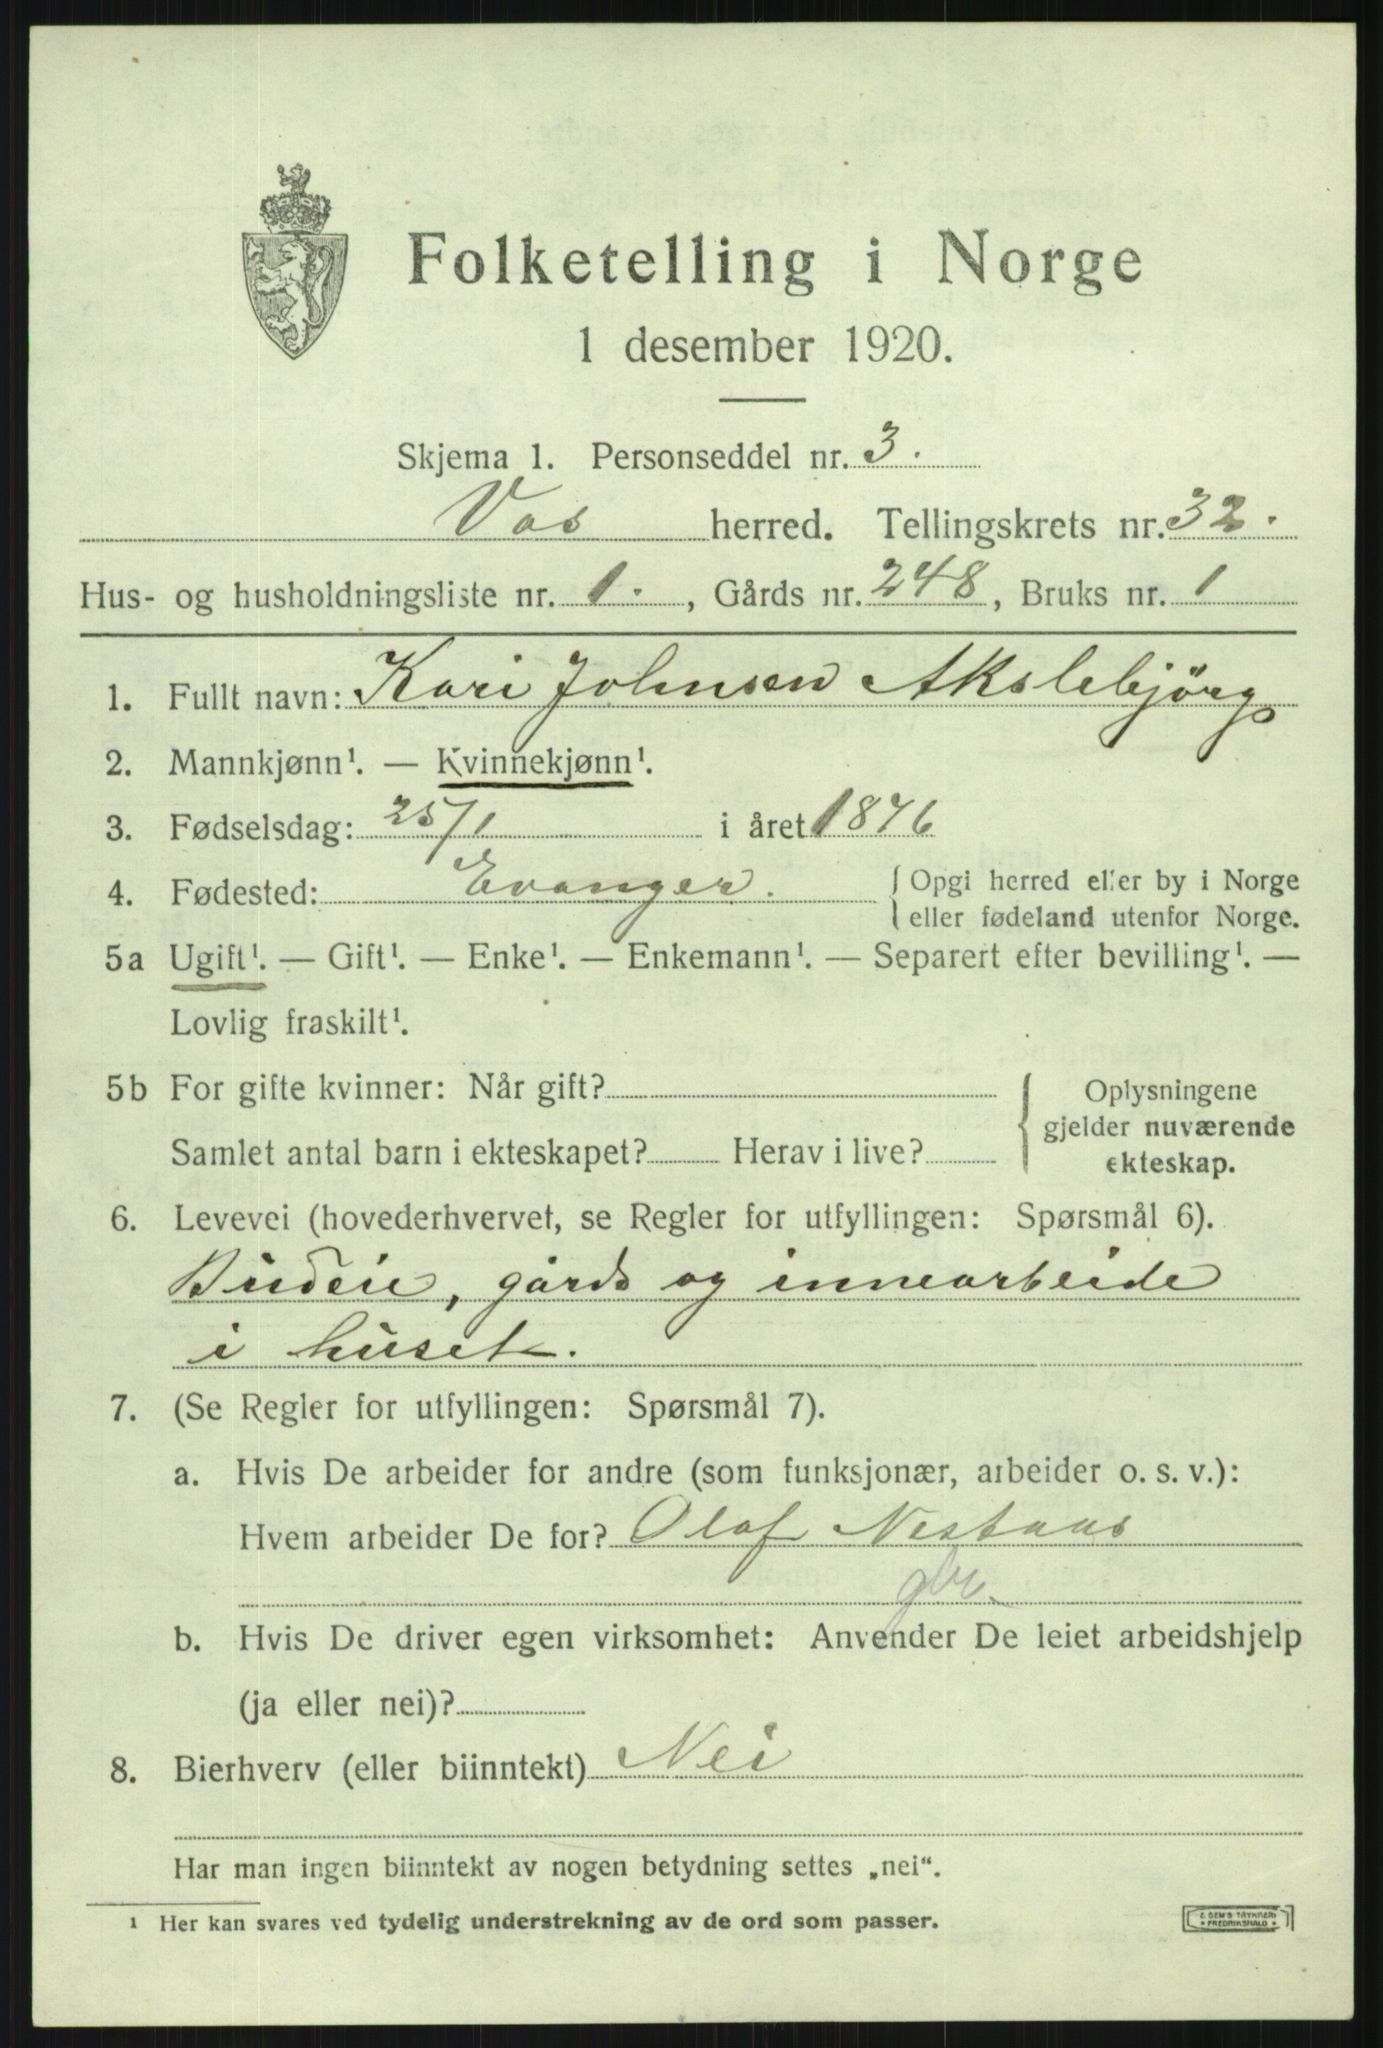 Folketelling i Norge
1 desember 1920.
Skjema 1. Personseddel nr. 3.
Vos herred. Tellingskrets nr. 32.
Hus- og husholdningsliste nr. 1. , Gårds nr. 248, Bruks nr. 1
1. Fullt navn: Kari Johnsen Akslebjörg
2. Mannkjønn¹. — Kvinnekjønn¹.
3. Fødselsdag: 25/1 i året 1876
4. Fødested: Evanger. { Opgi herred eller by i Norge
eller fødeland utenfor Norge.
5a Ugift¹. — Gift¹. — Enke¹. — Enkemann¹. — Separert efter bevilling¹. —
Lovlig fraskilt¹.
5b For gifte kvinner: Når gift? { Oplysningene
gjelder nuværende
Samlet antal barn i ekteskapet? Herav i live?
ekteskap.
6. Levevei (hovederhvervet, se Regler for utfyllingen: Spørsmål 6).
Budeie, gårds og innearbeide
i huset.
7. (Se Regler for utfyllingen: Spørsmål 7).
a. Hvis De arbeider for andre (som funksjonær, arbeider o. s. v.):
Hvem arbeider De for? Olaf Nestaas
gbr.
b. Hvis De driver egen virksomhet: Anvender De leiet arbeidshjelp
(ja eller nei)?
8. Bierhverv (eller biinntekt) Nei
Har man ingen biinntekt av nogen betydning settes „nei“.
¹ Her kan svares ved tydelig understrekning av de ord som passer.
E. SEM'S TRYKKERI
FREDRIKSHALD